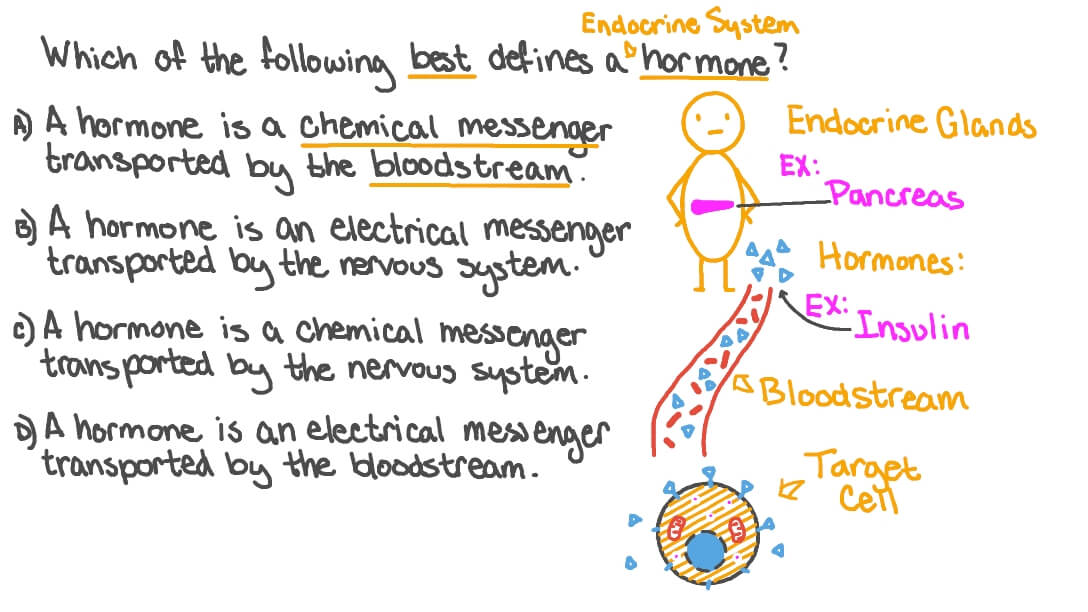 Endocrine System
Which of the following best defines a hormone?
A) A hormone is a chemical messenger
transported by the bloodstream.
B) A hormone is an electrical messenger
transported by the nervous system.
C) A hormone is a chemical messenger
transported by the nervous system.
D) A hormone is an electrical messenger
transported by the bloodstream.
Endocrine Glands
EX:
Pancreas
Hormones:
EX:
Insulin
Bloodstream
Target
Cell